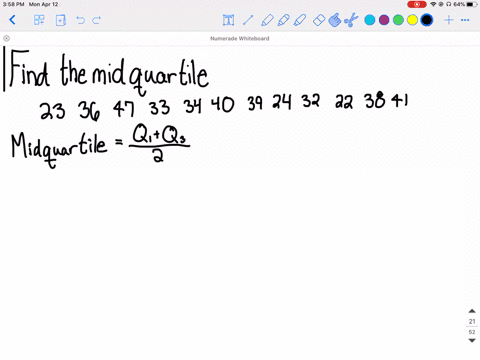 3:58 PM Mon Apr 12
64%
Numerade Whiteboard
Find the midquartile
23 36 47 33 34 40 39 24 32 22 38 41
Midquartile = Q₁+Q₃
2
21
52